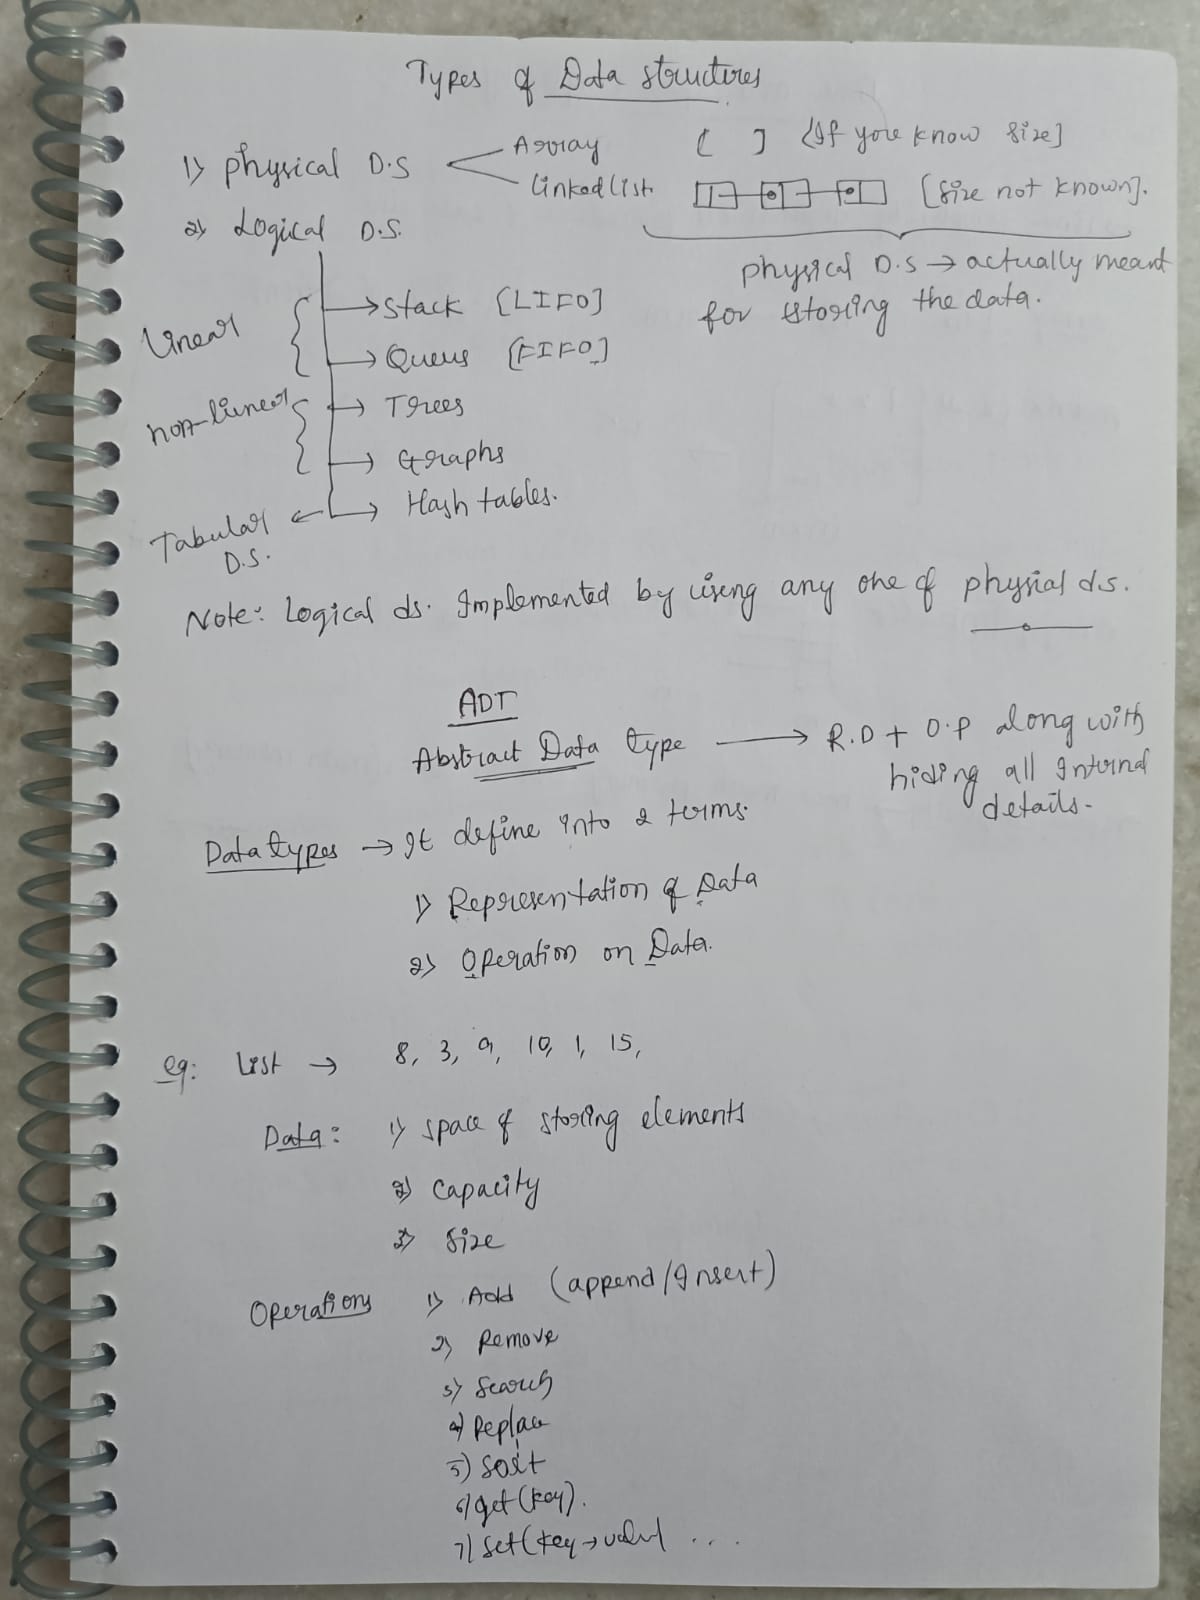 Types of Data structures
1) physical D.S
Array [ ] [If you know size]
linked list. [size not known].
2) Logical D.S.
physical D.S → actually meant
for storing the data.
Linear
→ Stack [LIFO]
→ Queue [FIFO]
non-linear
→ Trees
→ Graphs
→ Hash tables.
Tabular
D.S.
Note: Logical ds. Implemented by using any one of physial ds.
ADT
Abstract Data type → R.D + O.P along with
hiding all Internal
details.
Data types → It define into 2 terms.
1) Representation of Data
2) Operation on Data.
eg: List → 8, 3, 9, 10, 1, 15,
Data: 1) space of storing elements
2) Capacity
3) Size
Operations 1) Add (append/Insert)
2) Remove
3) Search
4) Replace
5) Sort
6) get (key).
7) Set (key → value) ...